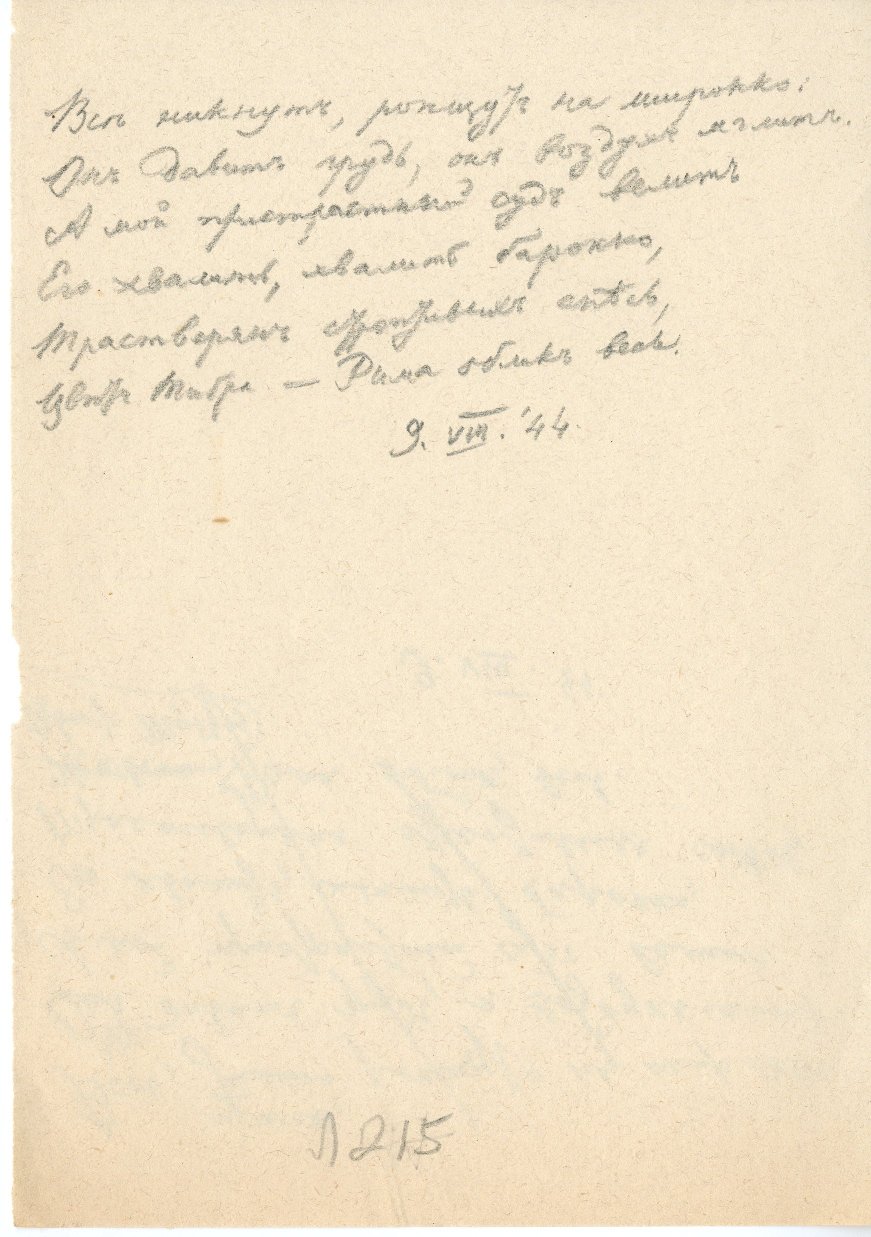 Всѣ никнутъ, ропщутъ на широкко:
Онъ давитъ грудь, онъ воздухъ мглитъ.
А мой пристрастный судъ велитъ
Его хвалить, хвалить барокко,
Траствервянъ строптивыхъ спѣсь,
Цвѣтъ Тибра — Рима обликъ весь.
9. VIII. '44.
Л 215